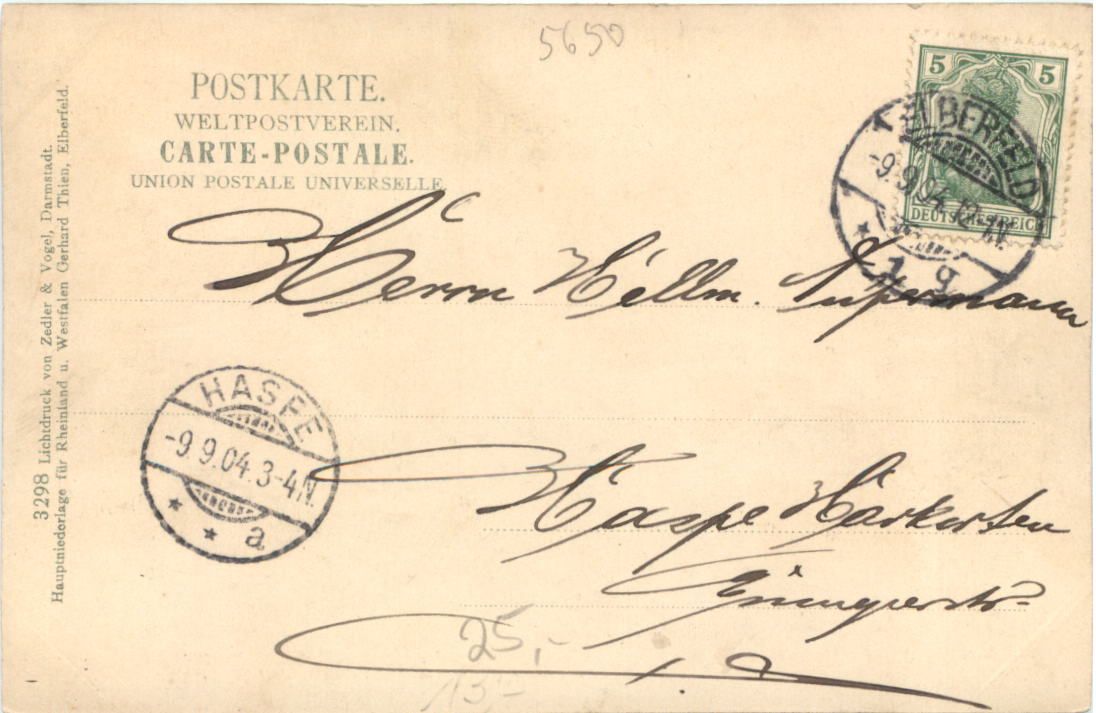 5650
POSTKARTE.
WELTPOSTVEREIN.
CARTE-POSTALE.
UNION POSTALE UNIVERSELLE
5 5
DEUTSCHES REICH
ELBERFELD
-9.9.04.
1 g
Herrn Hellm.
HASPE
-9.9.04.3-4N.
* * a
Haspe Harkorten
25,-
15,-
3298 Lichtdruck von Zedler & Vogel, Darmstadt.
Hauptniederlage für Rheinland u. Westfalen Gerhard Thien, Elberfeld.